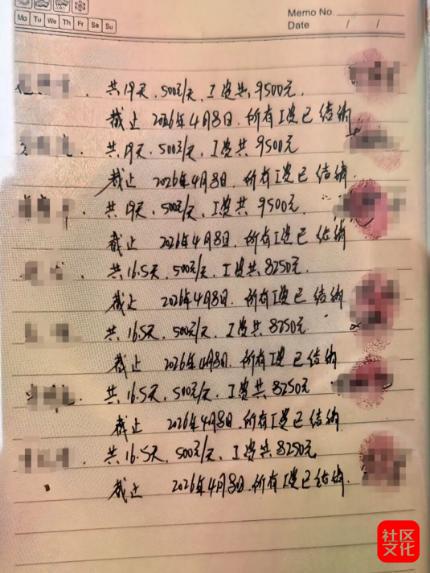 Memo No.
Mo Tu We Th Fr Sa Su
Date / /
共19天,500元/天,工资共9500元
截止 2026年4月8日,所有工资已结纳
共19天,500元/天,工资共9500元
截止 2026年4月8日,所有工资已结纳
共19天,500元/天,工资共9500元,
截止 2026年4月8日,所有工资已结纳
共16.5天,500元/天,工资共8250元,
截止 2026年4月8日,所有工资已结纳
共16.5天,500元/天,工资共8250元
截止 2026年4月8日,所有工资已结纳
共16.5天,500元/天,工资共8250元
截止 2026年4月8日,所有工资已结纳
共16.5天,500元/天,工资共8250元
截止 2026年4月8日,所有工资已结纳.
社区
文化